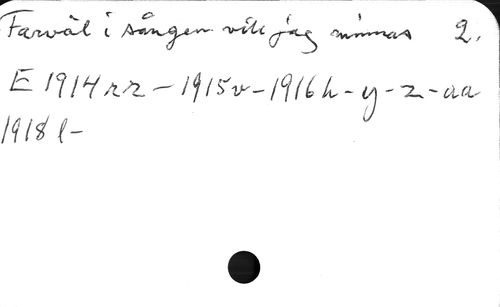 Farväl i sången vill jag minnas 2.
E 1914 rr - 1915 v - 1916 h - y - z - aa
1918 l -